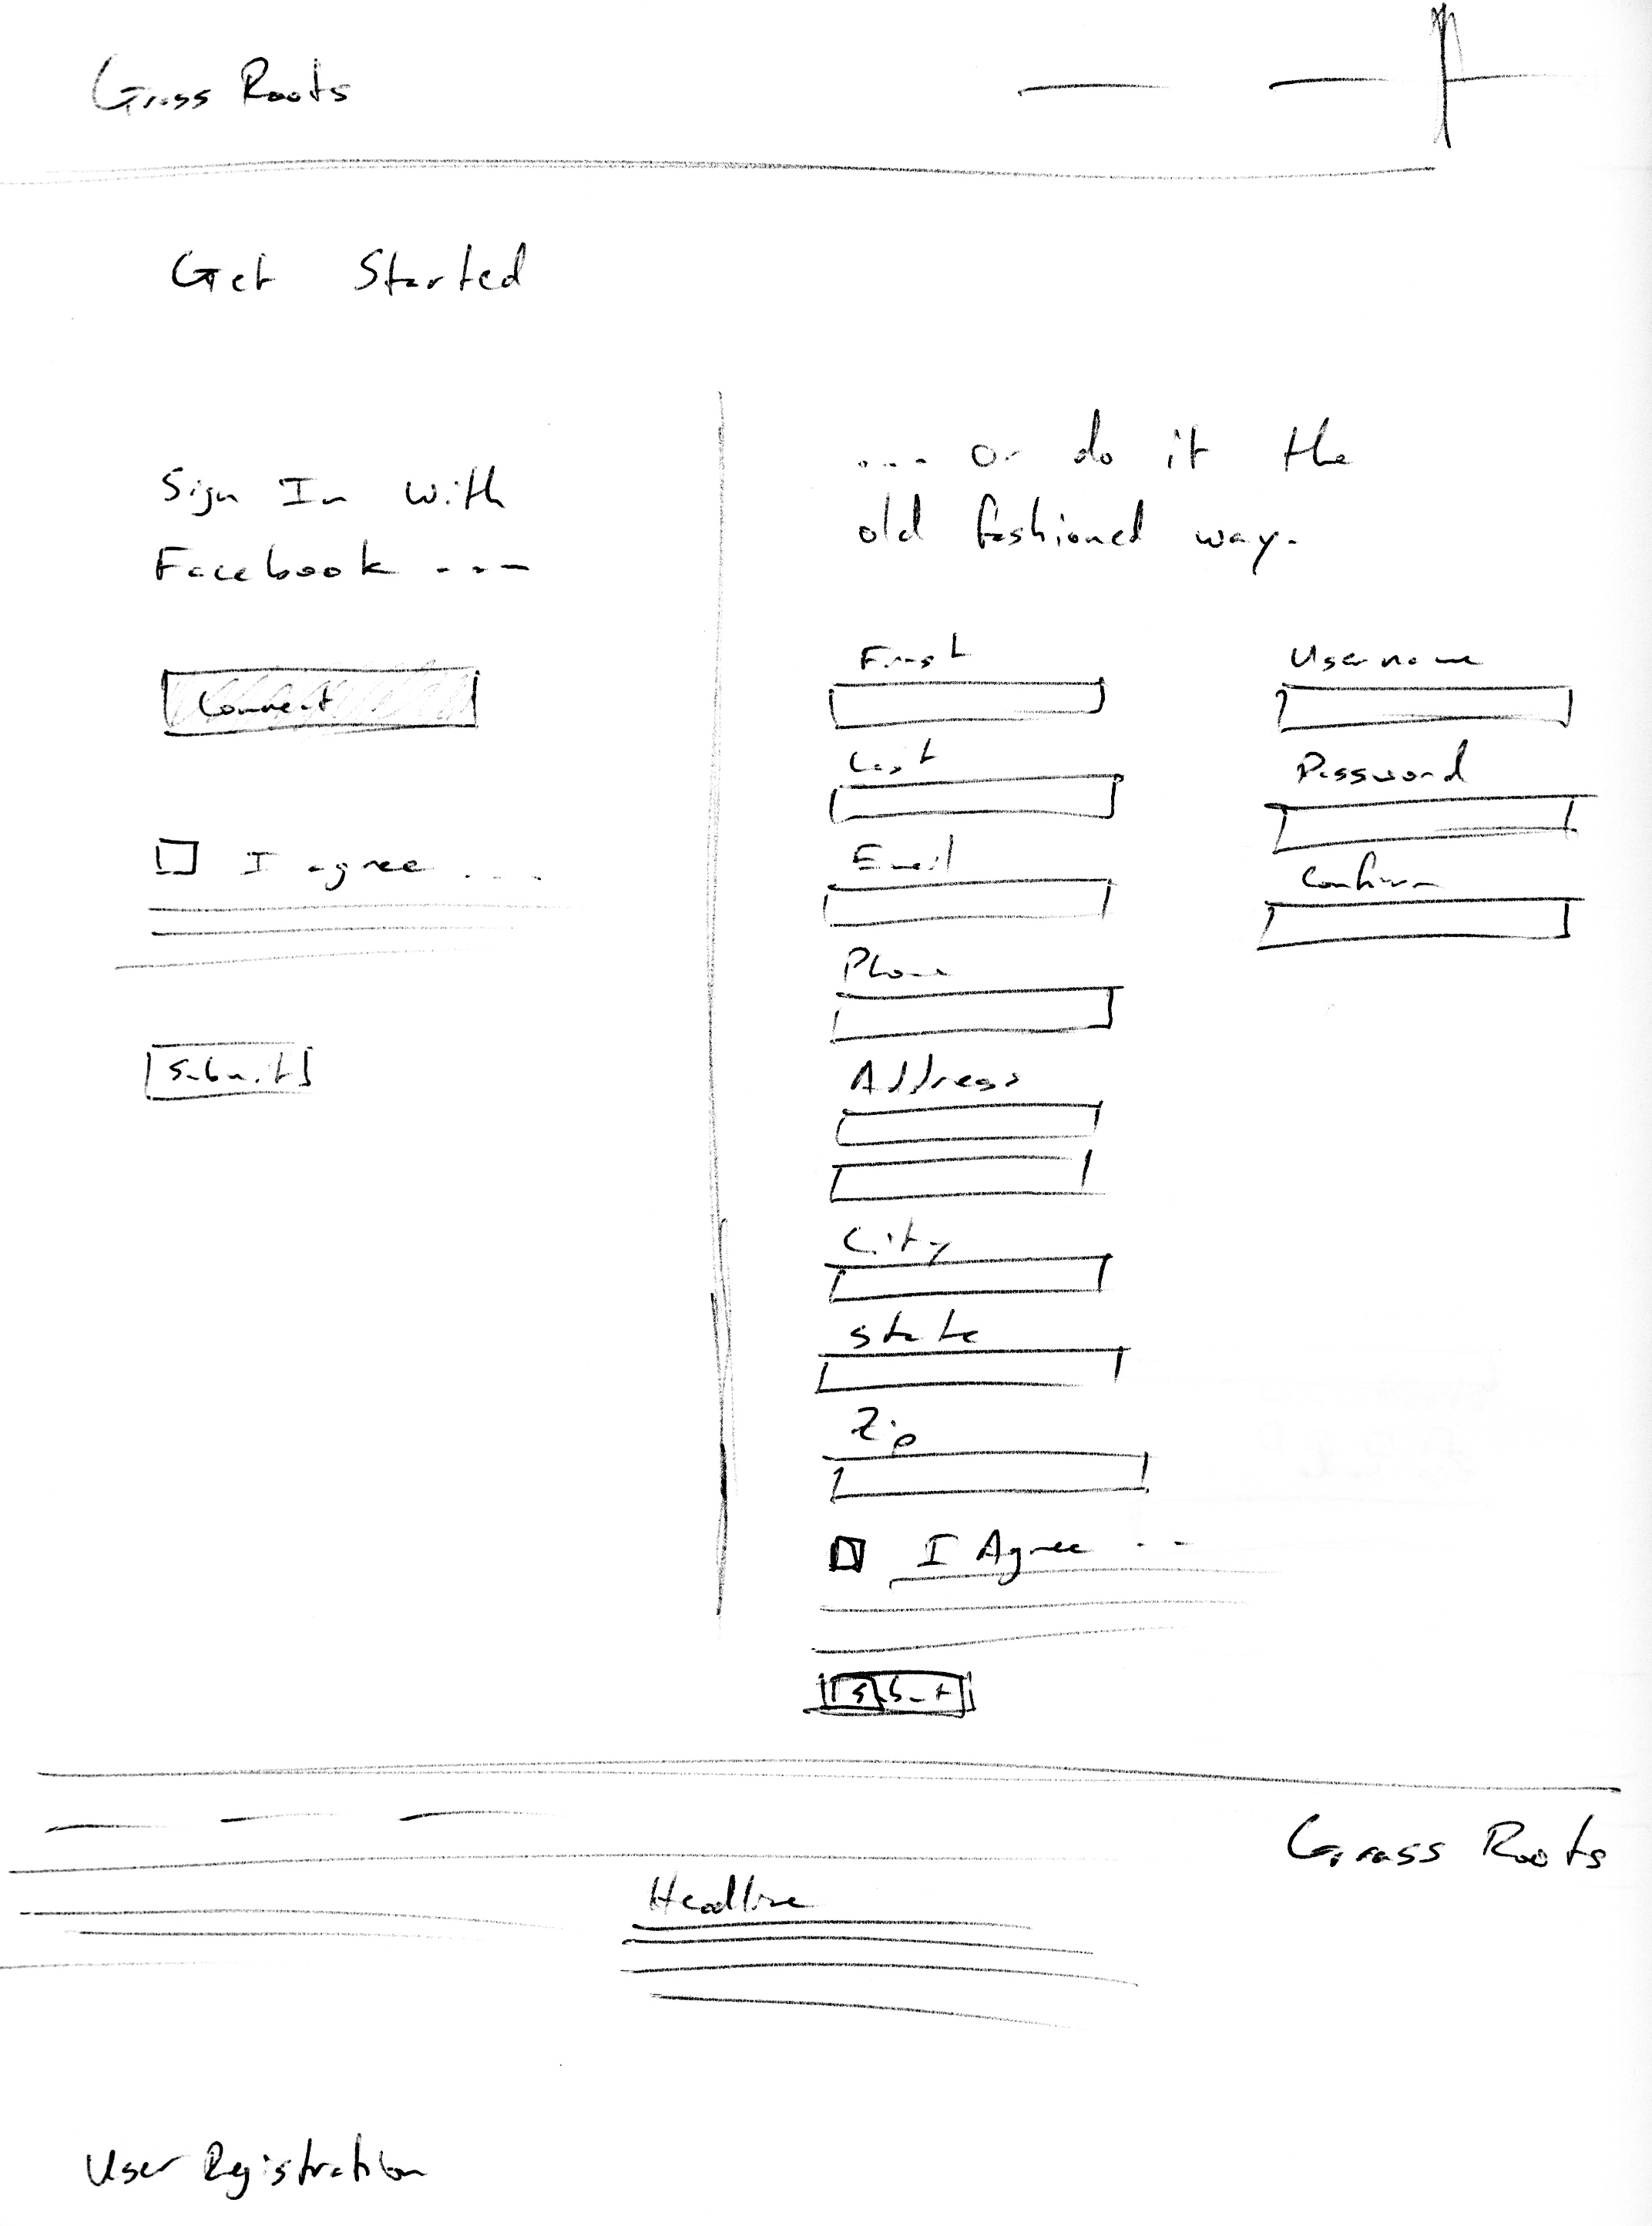 Grass Roots
Get Started
Sign In with
Facebook ...
Connect
I agree ...
Submit
.... or do it the
old fashioned way.
First
Last
Email
Phone
Address
City
State
Zip
I Agree ...
Submit
Username
Password
Confirm
Grass Roots
Headline
User Registration